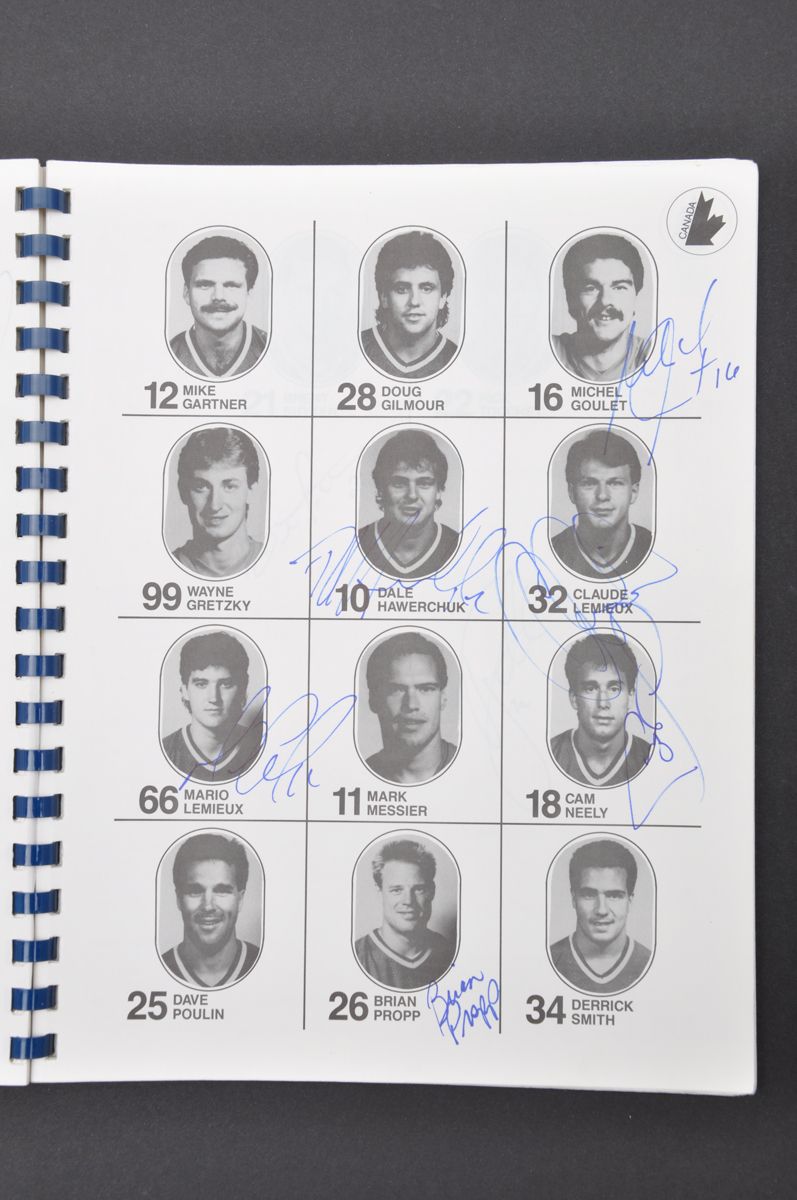 CANADA
12 MIKE
GARTNER
28 DOUG
GILMOUR
16 MICHEL
GOULET
+16
99 WAYNE
GRETZKY
10 DALE
HAWERCHUK
32 CLAUDE
LEMIEUX
66 MARIO
LEMIEUX
11 MARK
MESSIER
18 CAM
NEELY
25 DAVE
POULIN
26 BRIAN
PROPP
Brian
Propp
34 DERRICK
SMITH